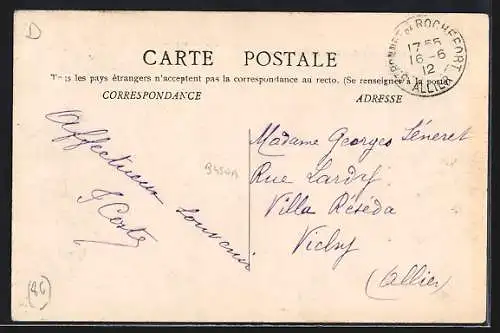 D
CARTE POSTALE
Tous les pays étrangers n'acceptent pas la correspondance au recto. (Se renseigner à la poste)
CORRESPONDANCE
ADRESSE
BONNET DE ROCHEFORT
17 55
16 -6
12
ALLIER
Affectueux souvenir
J Conte
Madame Georges Séneret
Rue Lardy
Villa Réséda
Vichy
(Allier)